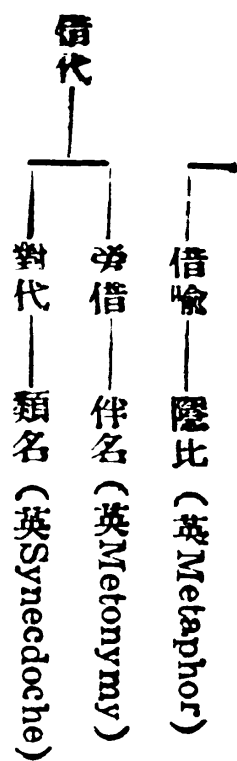 借喻——隱比（英Metaphor）
借代
旁借——伴名（英Metonymy）
對代——類名（英Synecdoche）